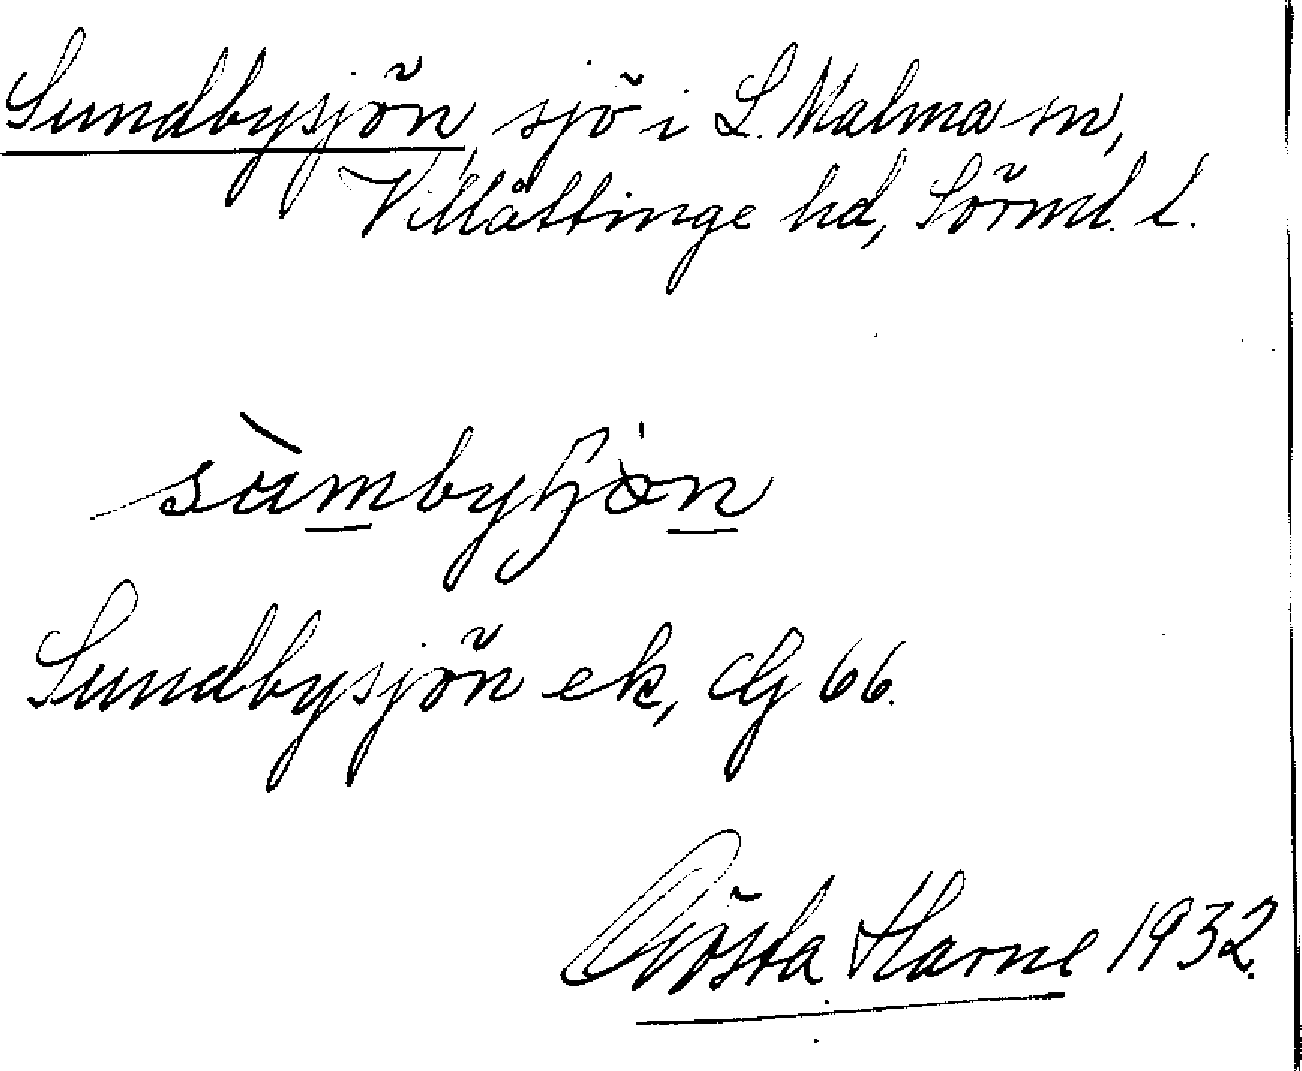 Sundbysjön, sjö i L. Malma sn,
Villåttinge hd, Sörml. l.
Sundbysjön ek, GG 66.
Gösta Harne 1932.